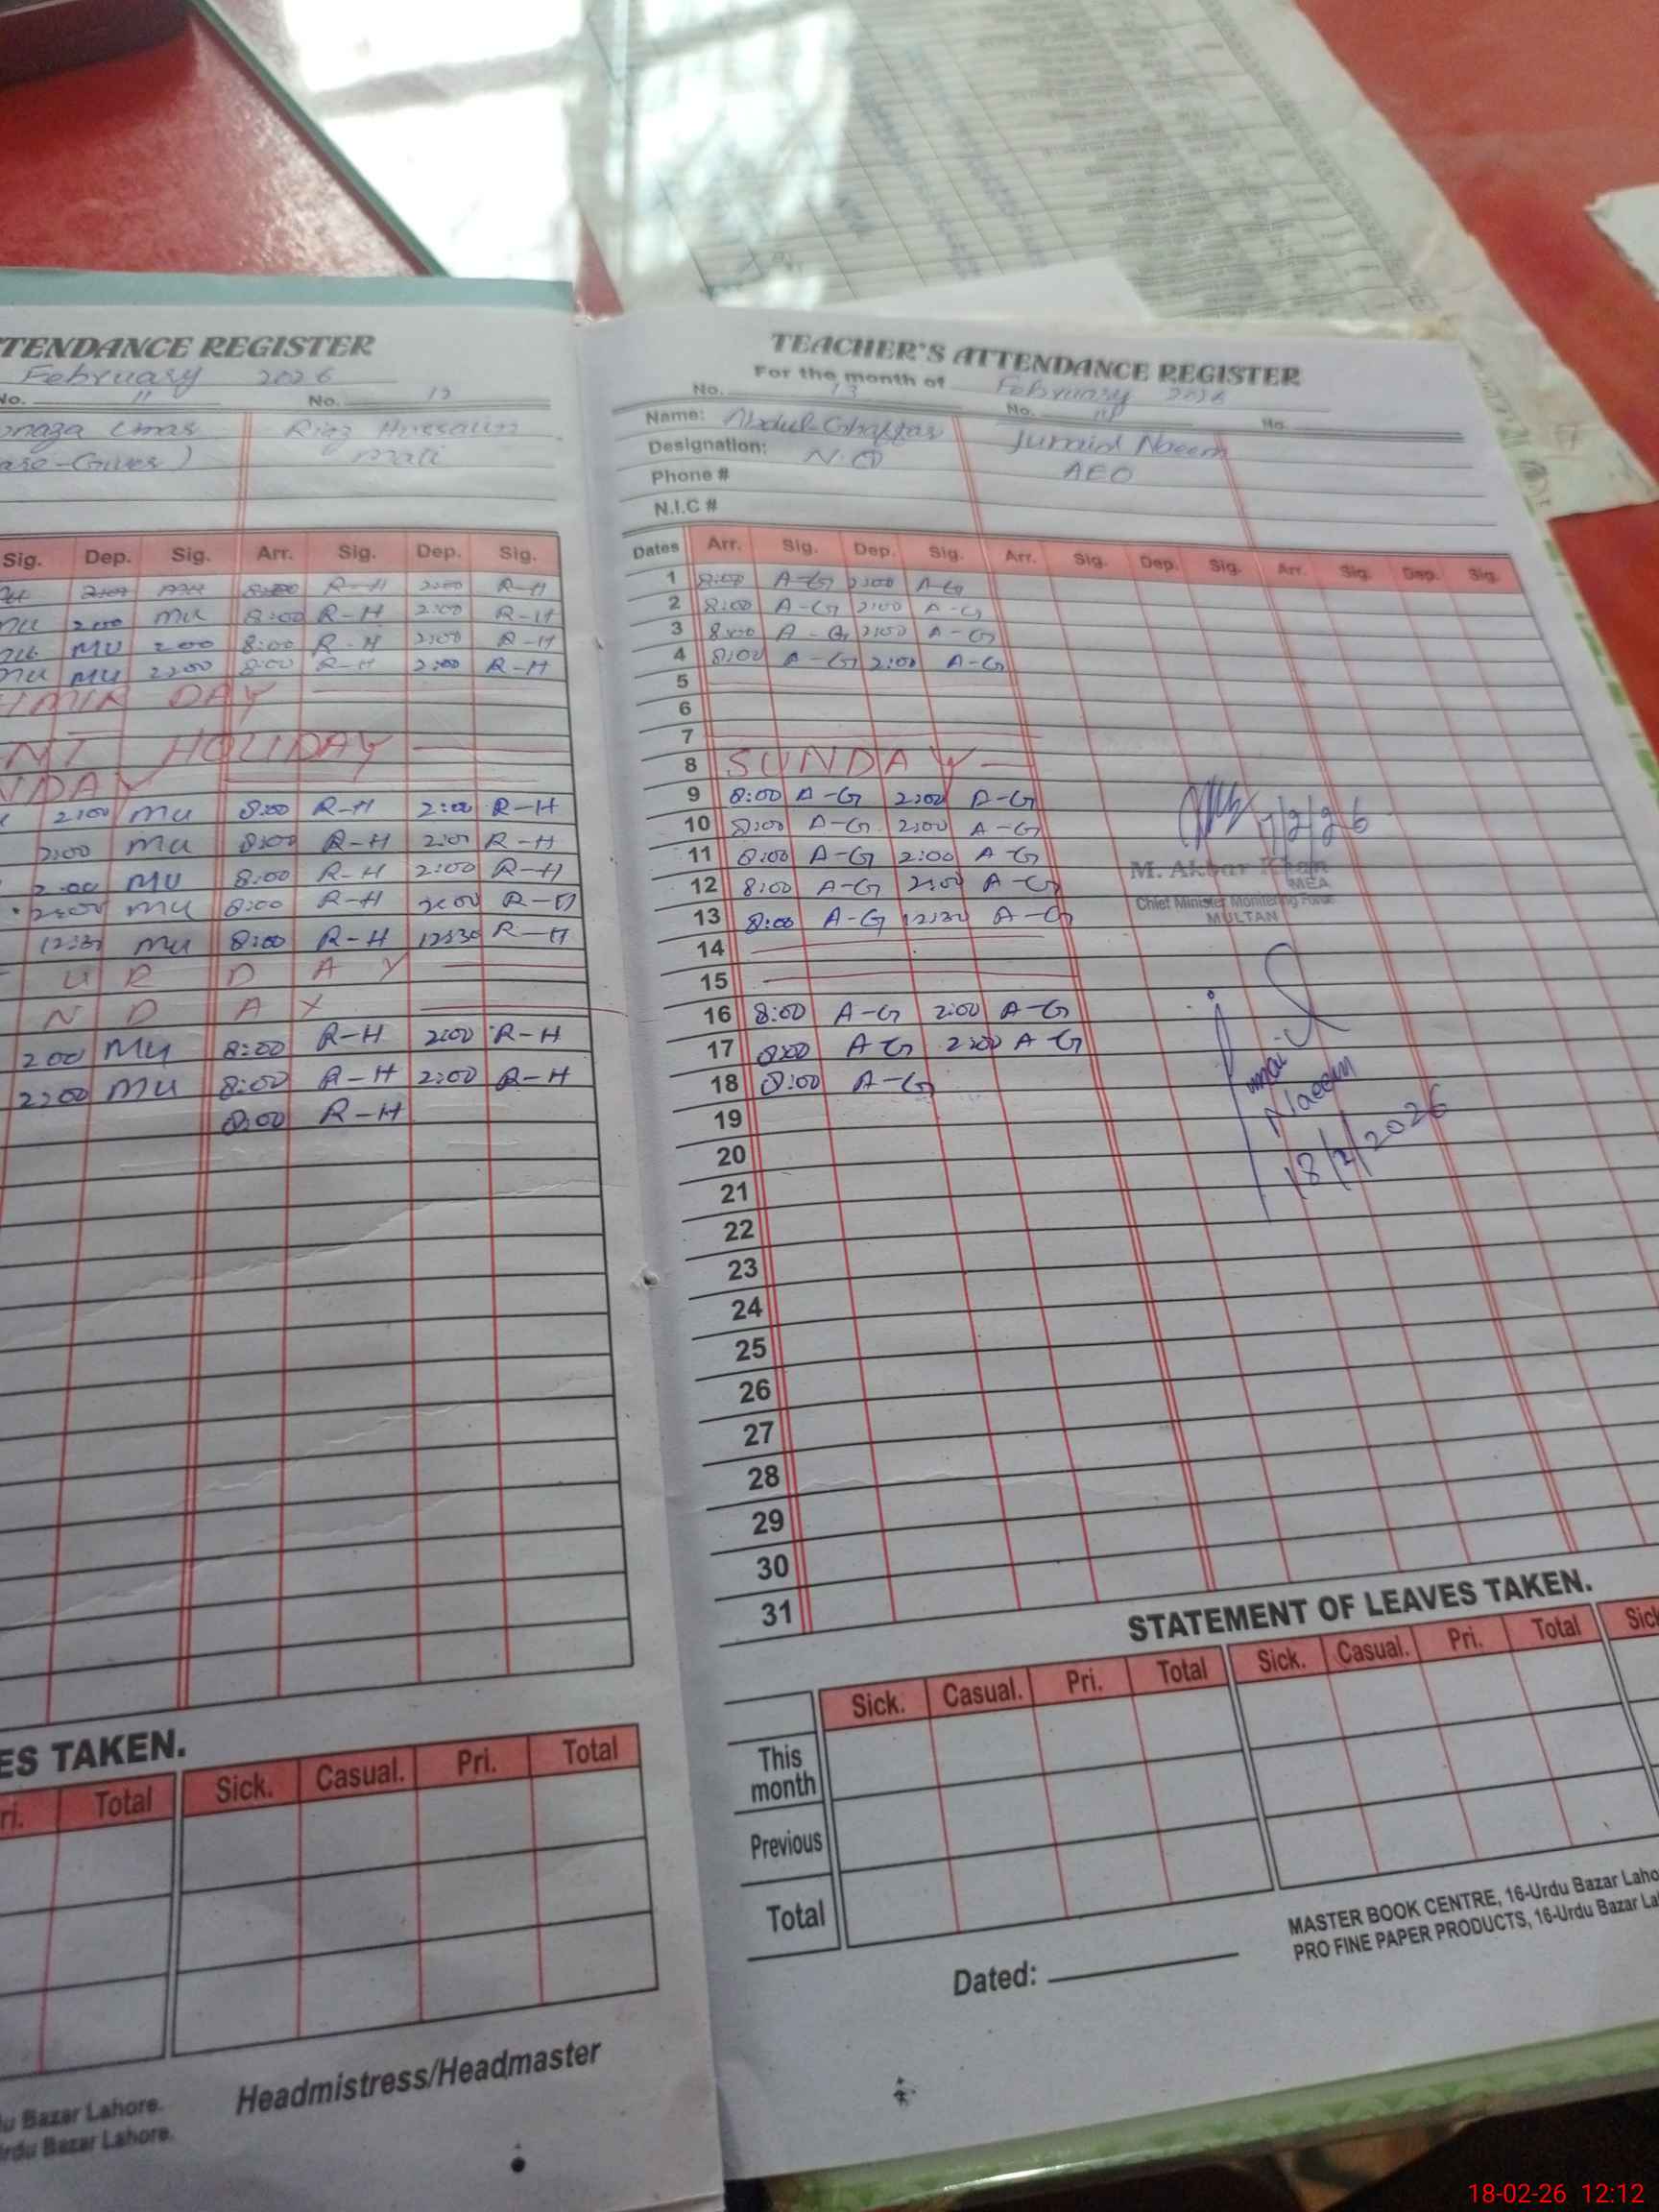 TENDANCE REGISTER
February 2026
No. 11 No. 12
Umar Riaz Hussain
mali
Sig. Dep. Sig. Arr. Sig. Dep. Sig.
8:00 R-H 2:00 R-H
mu 2:00 mu 8:00 R-H 2:00 R-H
MU 2:00 8:00 R-H 2:00 R-H
mu MU 2:00 8:00 R-H 2:00 R-H
DAY
NT HOLIDAY
NDAY
2:00 mu 8:00 R-H 2:00 R-H
2:00 mu 8:00 R-H 2:00 R-H
2:00 MU 8:00 R-H 2:00 R-H
2:00 mu 8:00 R-H 2:00 R-H
12:30 mu 8:00 R-H 12:30 R-H
U R D A Y
N D A Y
2:00 Mu 8:00 R-H 2:00 R-H
2:00 MU 8:00 R-H 2:00 R-H
8:00 R-H
ES TAKEN.
ri. Total Sick. Casual. Pri. Total
Headmistress/Headmaster
du Bazar Lahore.
Urdu Bazar Lahore.
TEACHER'S ATTENDANCE REGISTER
For the month of February 2026
No. 13 No. 14 No.
Name: Abdul Ghaffar Junaid Naeem
Designation: N.Q AEO
Phone #
N.I.C #
Dates Arr. Sig. Dep. Sig. Arr. Sig. Dep. Sig. Arr. Sig. Dep. Sig.
1 8:00 A-G 2:00 A-G
2 8:00 A-G 2:00 A-G
3 8:00 A-G 2:00 A-G
4 8:00 A-G 2:00 A-G
5
6
7
8 SUNDAY
9 8:00 A-G 2:00 A-G
10 8:00 A-G 2:00 A-G
11 8:00 A-G 2:00 A-G
12 8:00 A-G 2:00 A-G
13 8:00 A-G 12:30 A-G
14
15
16 8:00 A-G 2:00 A-G
17 8:00 A-G 2:00 A-G
18 8:00 A-G
19
20
21
22
23
24
25
26
27
28
29
30
31
17/2/26
M. Akbar Khan
MEA
Chief Minister Monitoring Force
MULTAN
Naeem
18/2/2026
STATEMENT OF LEAVES TAKEN.
Sick. Casual. Pri. Total Sick. Casual. Pri. Total Sick
This month
Previous
Total
Dated:
MASTER BOOK CENTRE, 16-Urdu Bazar Laho
PRO FINE PAPER PRODUCTS, 16-Urdu Bazar La
18-02-26 12:12